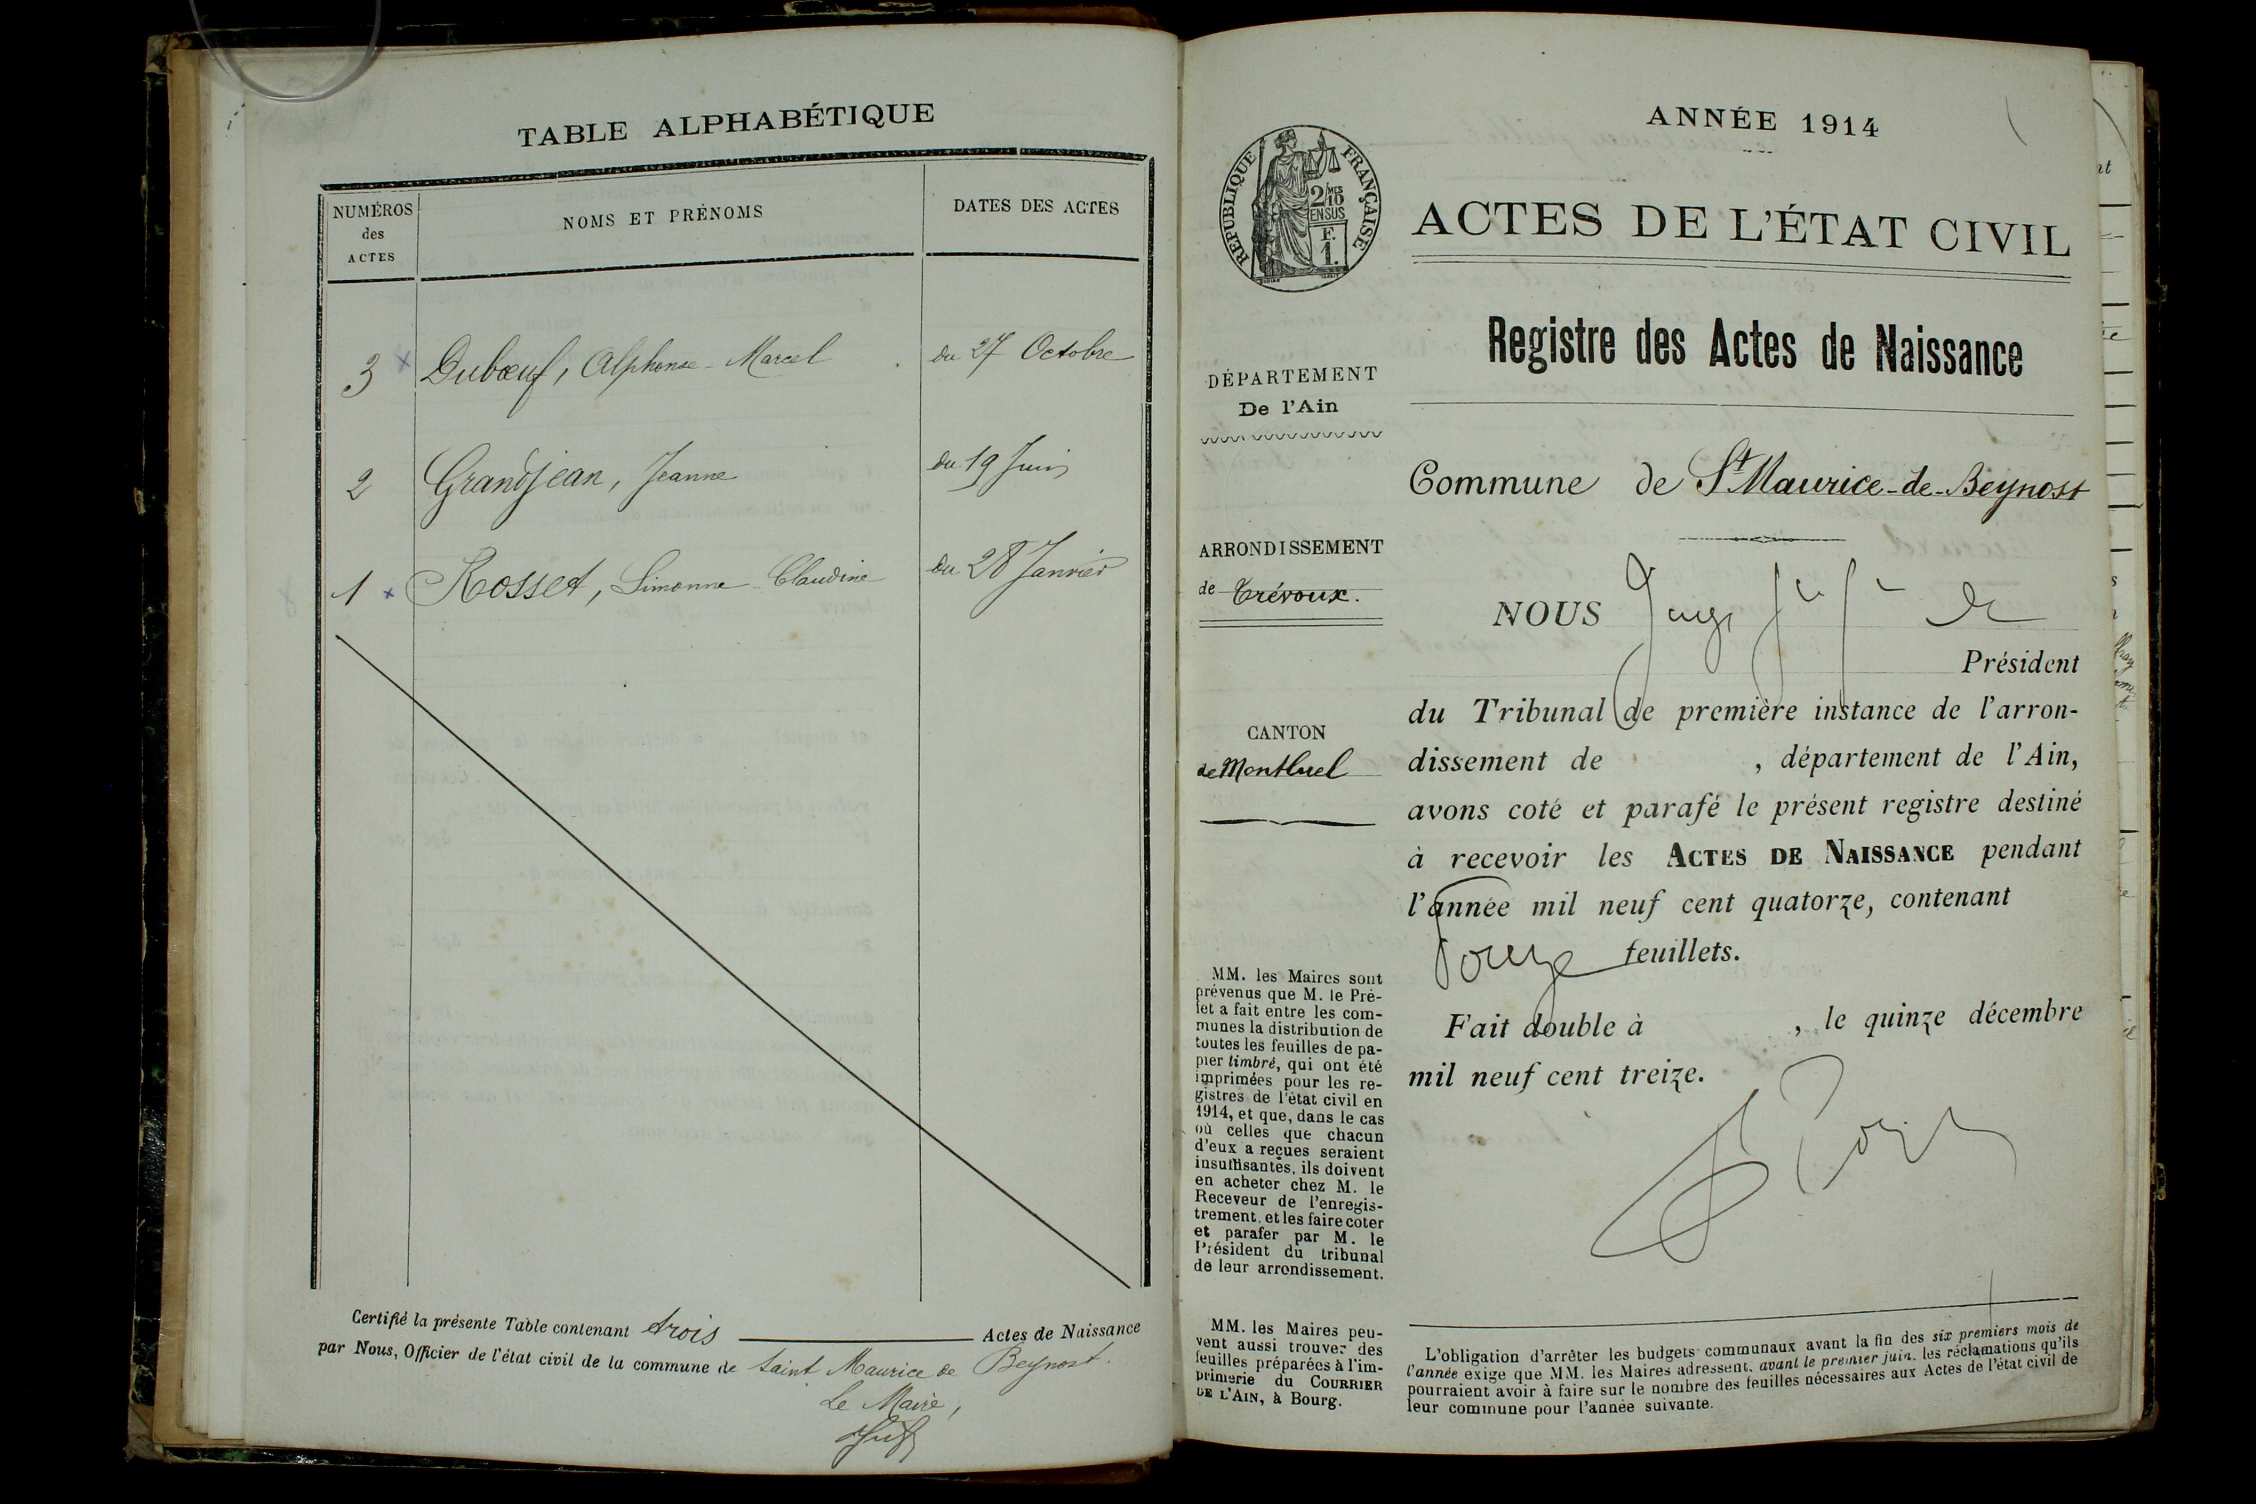 TABLE ALPHABÉTIQUE
NUMÉROS
des
ACTES
NOMS ET PRÉNOMS
DATES DES ACTES
3 Dubœuf, Alphonse-Marcel du 27 Octobre
2 Grandjean, Jeanne du 19 Juin
1 Rosset, Simonne-Claudine du 28 Janvier
Certifié la présente Table contenant trois Actes de Naissance
par Nous, Officier de l'état civil de la commune de Saint Maurice de Beynost.
Le Maire,
ANNÉE 1914
RÉPUBLIQUE FRANÇAISE
2/10MES
EN SUS
F.
1.
ACTES DE L'ÉTAT CIVIL
Registre des Actes de Naissance
DÉPARTEMENT
De l'Ain
Commune de St Maurice-de-Beynost
ARRONDISSEMENT
de Trévoux.
CANTON
de Montluel
NOUS Juge
Président
du Tribunal de première instance de l'arron-
dissement de , département de l'Ain,
avons coté et parafé le présent registre destiné
à recevoir les ACTES DE NAISSANCE pendant
l'année mil neuf cent quatorze, contenant
feuillets.
Fait double à , le quinze décembre
mil neuf cent treize.
MM. les Maires sont
prévenus que M. le Pré-
fet a fait entre les com-
munes la distribution de
toutes les feuilles de pa-
pier timbré, qui ont été
imprimées pour les re-
gistres de l'état civil en
1914, et que, dans le cas
où celles que chacun
d'eux a reçues seraient
insuffisantes, ils doivent
en acheter chez M. le
Receveur de l'enregis-
trement, et les faire coter
et parafer par M. le
Président du tribunal
de leur arrondissement.
MM. les Maires peu-
vent aussi trouver des
feuilles préparées à l'im-
primerie du COURRIER
DE L'AIN, à Bourg.
L'obligation d'arrêter les budgets communaux avant la fin des six premiers mois de
l'année exige que MM. les Maires adressent, avant le premier juin, les réclamations qu'ils
pourraient avoir à faire sur le nombre des feuilles nécessaires aux Actes de l'état civil de
leur commune pour l'année suivante.